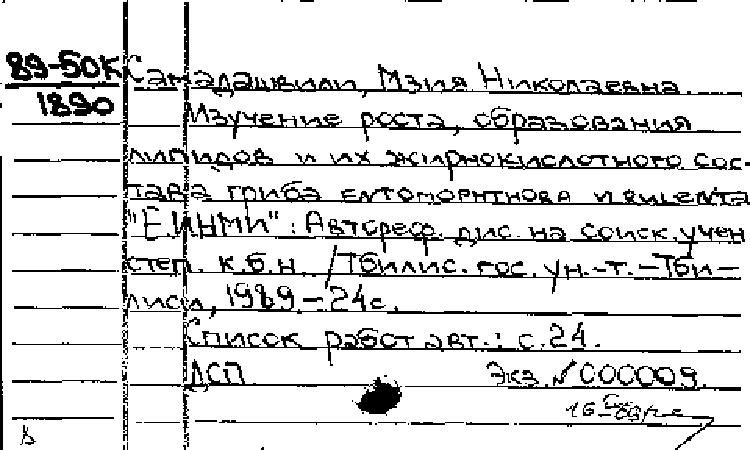 89-50К
1890
Самадашвили, Мзия Николаевна.
Изучение роста, образования
липидов и их жирнокислотного сос-
тава гриба ENTOMOPHTHORA VIRULENTA
"Е.ИНМИ": Автореф. дис. на соиск. учен
степ. к.б.н. /Тбилис. гос. ун.-т.-Тби-
лиси, 1989.-24с.
Список работ авт.: с.24.
ДСП Экз. №000009.
16